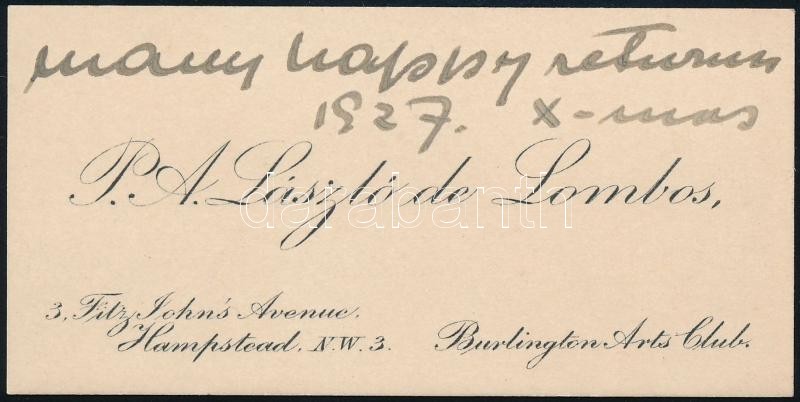 many happy returns
1927. X-mas
P. A. László de Lombos,
darabanth
3, Fitz John's Avenue.
Hampstead. N.W. 3.
Burlington Arts Club.